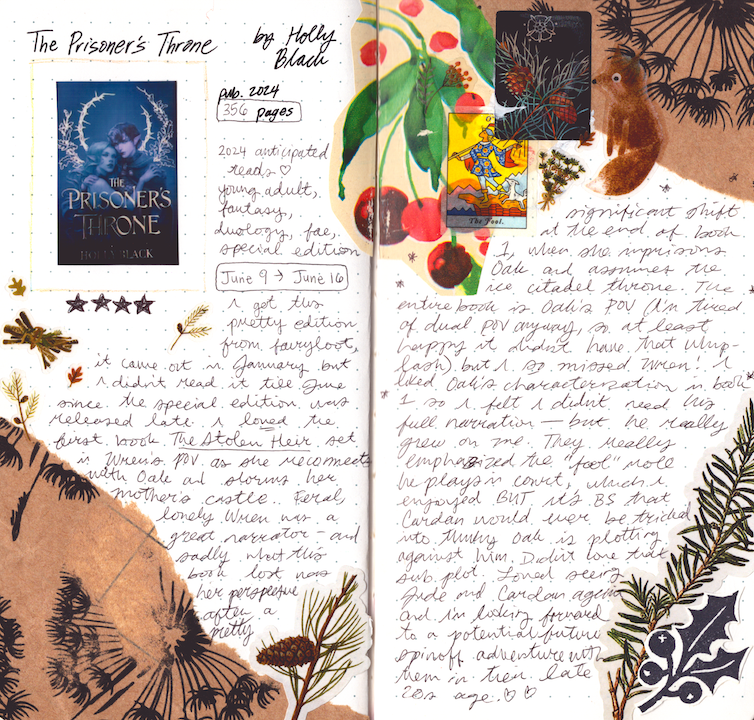 The Prisoner's Throne
by Holly
Black
pub. 2024
356 pages
THE
PRISONER'S
THRONE
HOLLY BLACK
2024 anticipated
reads ♡
young adult,
fantasy,
duology, fae,
special edition
June 9 → June 16
I got this
pretty edition
from fairyloot,
it came out in January but
I didn't read it till June
since the special edition was
released late. I loved the
first book The Stolen Heir set
in Wren's POV as she reconnects
with Oak and storms her
mother's castle. Feral
lonely Wren was a
great narrator – and
sadly what this
book lost was
her perspective
after a
pretty
The Fool.
significant shift
at the end of book
1, when she imprisons
Oak and assumes the
ice citadel throne. The
entire book is Oak's POV (I'm tired
of dual POV anyway, so at least
happy it didn't have that whip-
lash) but I so missed Wren! I
liked Oak's characterization in book
1 so I felt I didn't need his
full narration — but he really
grew on me. They really
emphasized the "fool" role
he plays in court, which I
enjoyed. BUT it's BS that
Cardan would ever be tricked
into thinking Oak is plotting
against him. Didn't love that
sub plot. Loved seeing
Jude and Cardan again
and I'm looking forward
to a potential future
spinoff adventure with
them in their late
20s age. ♡ ♡